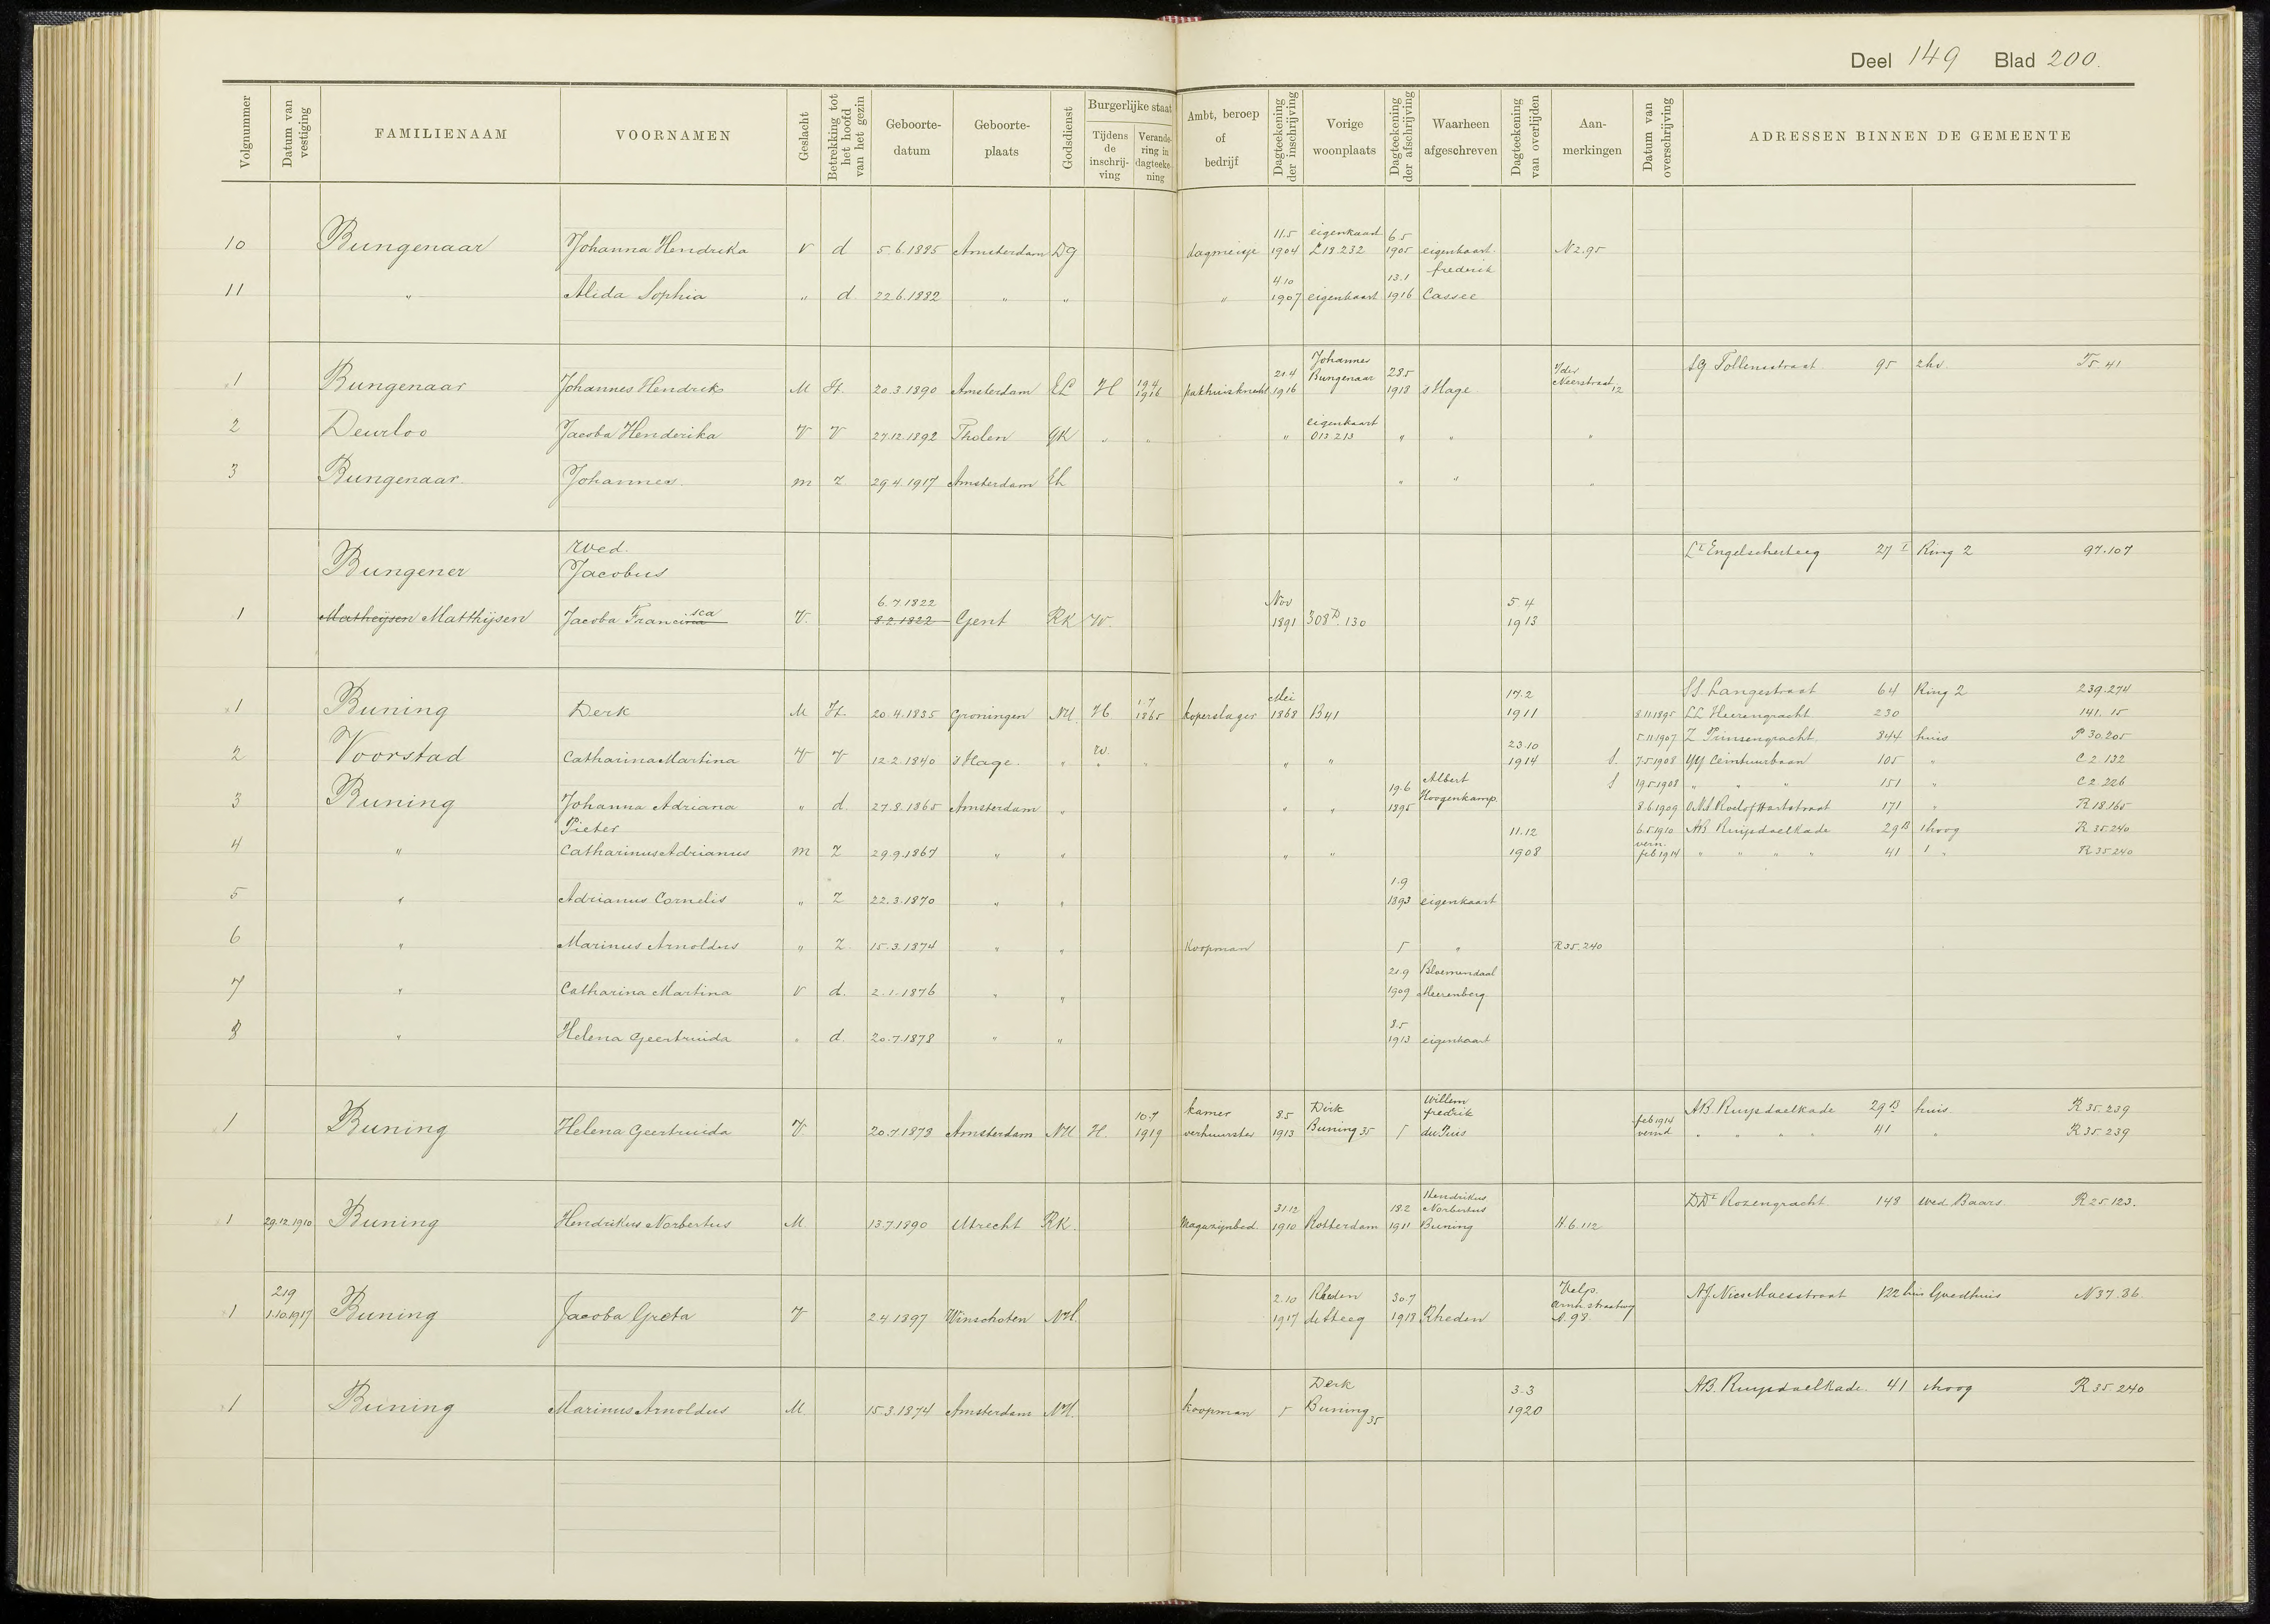 Deel 149 Blad 200.
Volgnummer | Datum van vestiging | FAMILIENAAM | VOORNAMEN | Geslacht | Betrekking tot het hoofd van het gezin | Geboorte-datum | Geboorte-plaats | Godsdienst | Burgerlijke staat | Tijdens de inschrij-ving | Verande-ring in dagteeke-ning | Ambt, beroep of bedrijf | Dagteekening der inschrijving | Vorige woonplaats | Dagteekening der afschrijving | Waarheen afgeschreven | Dagteekening van overlijden | Aan-merkingen | Datum van overschrijving | ADRESSEN BINNEN DE GEMEENTE
10 Bungenaar Johanna Hendrika V d 5.6.1885 Amsterdam DG dagmeisje 11.5 1904 eigenkaart L18.232 6.5 1905 eigenkaart N2.95
11 " Alida Sophia " d 22.6.1882 " " " 4.10 1907 eigenkaart 13.1 1916 frederik Cassee
1 Bungenaar Johannes Hendrik M H. 20.3.1890 Amsterdam EL H 19.4 1916 pakhuisknecht 21.4 1916 Johannes Bungenaar 28.5 1918 s Hage Neerstraat 12 Tollensstraat 95 2hv. Tr 41
2 Deurloo Jacoba Henderika V V 27.12.1892 Tholen GK " " " eigenkaart O13 213 " " "
3 Bungenaar Johannes. m Z 29.4.1917 Amsterdam EL " " "
Bungener wed. Jacobus Engelschesteeg 27 I Ring 2 97.107
1 Matheijsen Matthijsen Jacoba Francina sca V. 6.7.1822 8.2.1822 Gent RK W. Nov 1891 308D. 130 5.4 1913
1 Buning Derk M H. 20.4.1835 Groningen NH H 1.7 1865 koperslager Mei 1868 B41 17.2 1911 SS. Langestraat 64 Ring 2 239.274
8.11.1895 LL Heerengracht 230 141. 15
2 Voorstad Catharina Martina V V 12.2.1840 s Hage. " W. " " " 23.10 1914 5.11.1907 Z Prinsengracht 844 huis P 30.205
7.5.1908 YY Ceintuurbaan 105 " C2 132
3 Buning Johanna Adriana " d. 27.8.1865 Amsterdam " " " 19.6 1895 Albert Hoogenkamp. 19.5.1908 " " " 151 " C2 226
8.6.1909 Roelof Hartstraat 171 " R18.165
4 " Pieter Catharinus Adrianus m Z 29.9.1867 " " " " 11.12 1908 6.5.1910 AB. Ruijsdaelkade 29B 1hoog R 35.240
vern. feb 1914 " " " " 41 1 " R 35.240
5 " Adrianus Cornelis " Z 22.3.1870 " " 1.9 1893 eigenkaart
6 " Marinus Arnoldus " Z. 15.3.1874 " " Koopman " R35.240
7 " Catharina Martina V d. 2.1.1876 " " 21.9 1909 Bloemendaal Meerenberg
8 " Helena Geertruida " d. 20.7.1878 " " 8.5 1913 eigenkaart
1 Buning Helena Geertruida V. 20.7.1878 Amsterdam NH H. 10.7 1919 kamer verhuurster 8.5 1913 Dirk Buning 35 Willem fredrik du Puis AB. Ruijsdaelkade 29B huis R35.239
feb 1914 vernd " " " " 41 " R35.239
1 29.12.1910 Buning Hendrikus Norbertus M 13.7.1890 Utrecht RK. Magazijnbed. 31.12 1910 Rotterdam 18.2 1911 Hendrikus Norbertus Buning H.6.112 DD Rozengracht 148 wed. Baars. R25.123.
1 219 1.10.1917 Buning Jacoba Greta V 2.4.1897 Winschoten NH. 2.10 1917 Rheden de Steeg 30.7 1918 Rheden Velp. Arnh. straatweg A. 98 AJ. Nics Maesstraat 122 huis Goedhuis N37.36.
1 Buning Marinus Arnoldus M 15.3.1874 Amsterdam NH. koopman Derk Buning 35 3.3 1920 AB. Ruysdaelkade. 41 1hoog R35.240